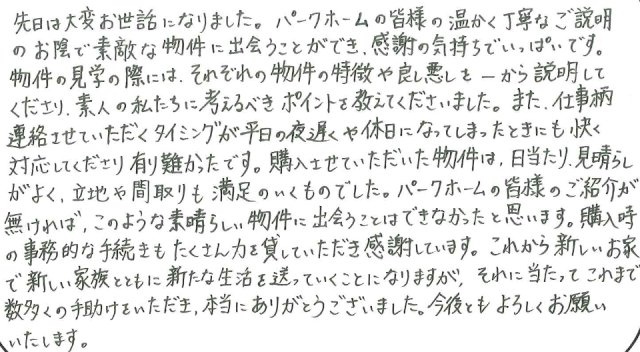 先日は大変お世話になりました。パークホームの皆様の温かく丁寧なご説明
のお陰で素敵な物件に出会うことができ、感謝の気持ちでいっぱいです。
物件の見学の際には、それぞれの物件の特徴や良し悪しを一から説明して
くださり、素人の私たちに考えるべきポイントを教えてくださいました。また、仕事柄
連絡させていただくタイミングが平日の夜遅くや休日になってしまったときにも快く
対応してくださり有り難かったです。購入させていただいた物件は、日当たり、見晴らし
がよく、立地や間取りも満足のいくものでした。パークホームの皆様のご紹介が
無ければ、このような素晴らしい物件に出会うことはできなかったと思います。購入時
の事務的な手続きもたくさん力を貸していただき感謝しています。これから新しいお家
で新しい家族とともに新たな生活を送っていくことになりますが、それに当たってこれまで
数多くの手助けをいただき、本当にありがとうございました。今後ともよろしくお願い
いたします。